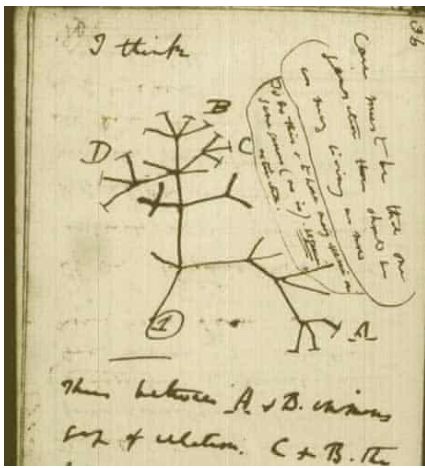 36
I think
Case must be that one
generation then should be
as many living as now
To do this & to have many species in
same genus (as is). requires
extinction.
B
D
C
A
1
Thus between A & B. immense
gap of relation. C & B. the